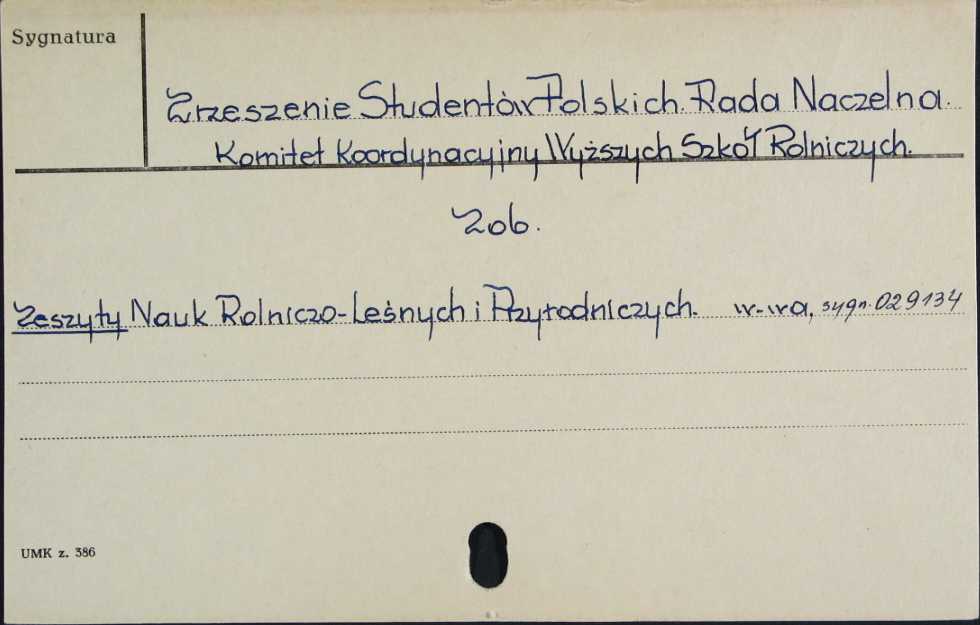 Sygnatura
Zrzeszenie Studentów Polskich. Rada Naczelna.
Komitet Koordynacyjny Wyższych Szkół Rolniczych.
Zob.
Zeszyty Nauk Rolniczo-Leśnych i Przyrodniczych. W-wa, sygn. 029134
UMK z. 386